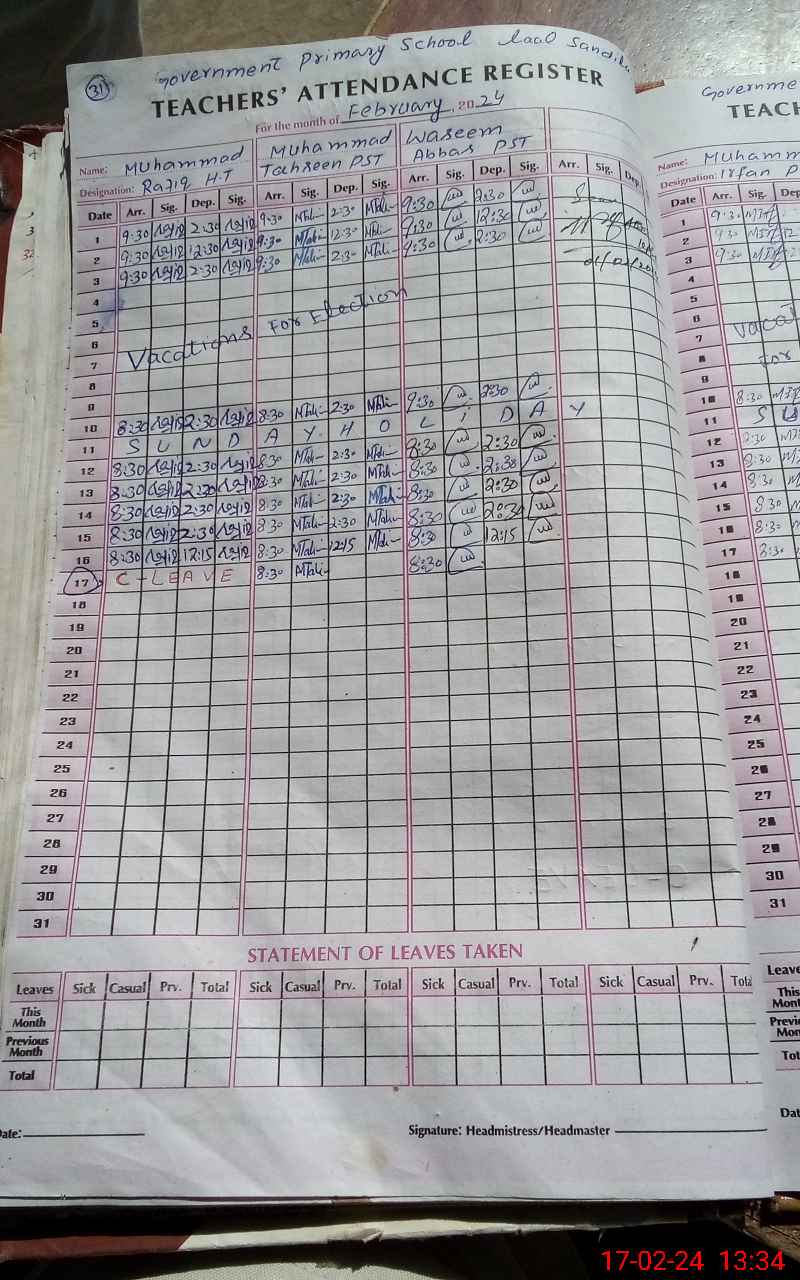 31
Government Primary School Laal Sandila
TEACHERS' ATTENDANCE REGISTER
For the month of February, 2024
Name: Muhammad Rafiq H.T
Muhammad Tahseen PST
Waseem Abbas PST
Designation:
Date Arr. Sig. Dep. Sig. Arr. Sig. Dep. Sig. Arr. Sig. Dep. Sig. Arr. Sig. Dep.
1 9:30 2:30 9:30 MTah 2:30 MTah 9:30 2:30
2 9:30 12:30 9:30 MTah 12:30 MTah 9:30 12:30
3 9:30 2:30 9:30 MTah 2:30 MTah 9:30 2:30
4
5
6
7 Vacations For Election
8
9
10 8:30 2:30 8:30 MTah 2:30 MTah 9:30 2:30
11 S U N D A Y H O L i D A Y
12 8:30 2:30 8:30 MTah 2:30 MTah 8:30 2:30
13 8:30 2:30 8:30 MTah 2:30 MTah 8:30 2:30
14 8:30 2:30 8:30 MTah 2:30 MTah 8:30 2:30
15 8:30 2:30 8:30 MTah 2:30 MTah 8:30 2:30
16 8:30 12:15 8:30 MTah 12:15 MTah 8:30 12:15
17 C-LEAVE 8:30 MTah 8:30
18
19
20
21
22
23
24
25
26
27
28
29
30
31
STATEMENT OF LEAVES TAKEN
Leaves Sick Casual Prv. Total Sick Casual Prv. Total Sick Casual Prv. Total Sick Casual Prv. Total
This Month
Previous Month
Total
Date:
Signature: Headmistress/Headmaster
Governme
TEACH
Name: Muhamm
Designation: Irfan P
Date Arr. Sig. Dep
1 9:30
2 9:30
3 9:30
4
5
6
7 Vacat
8 for
9
10 8:30
11 S U
12
13 8:30
14 8:30
15 8:30
16 8:30
17 8:30
18
19
20
21
22
23
24
25
26
27
28
29
30
31
Leave
This
Mont
Previ
Mon
Tot
Dat
17-02-24 13:34